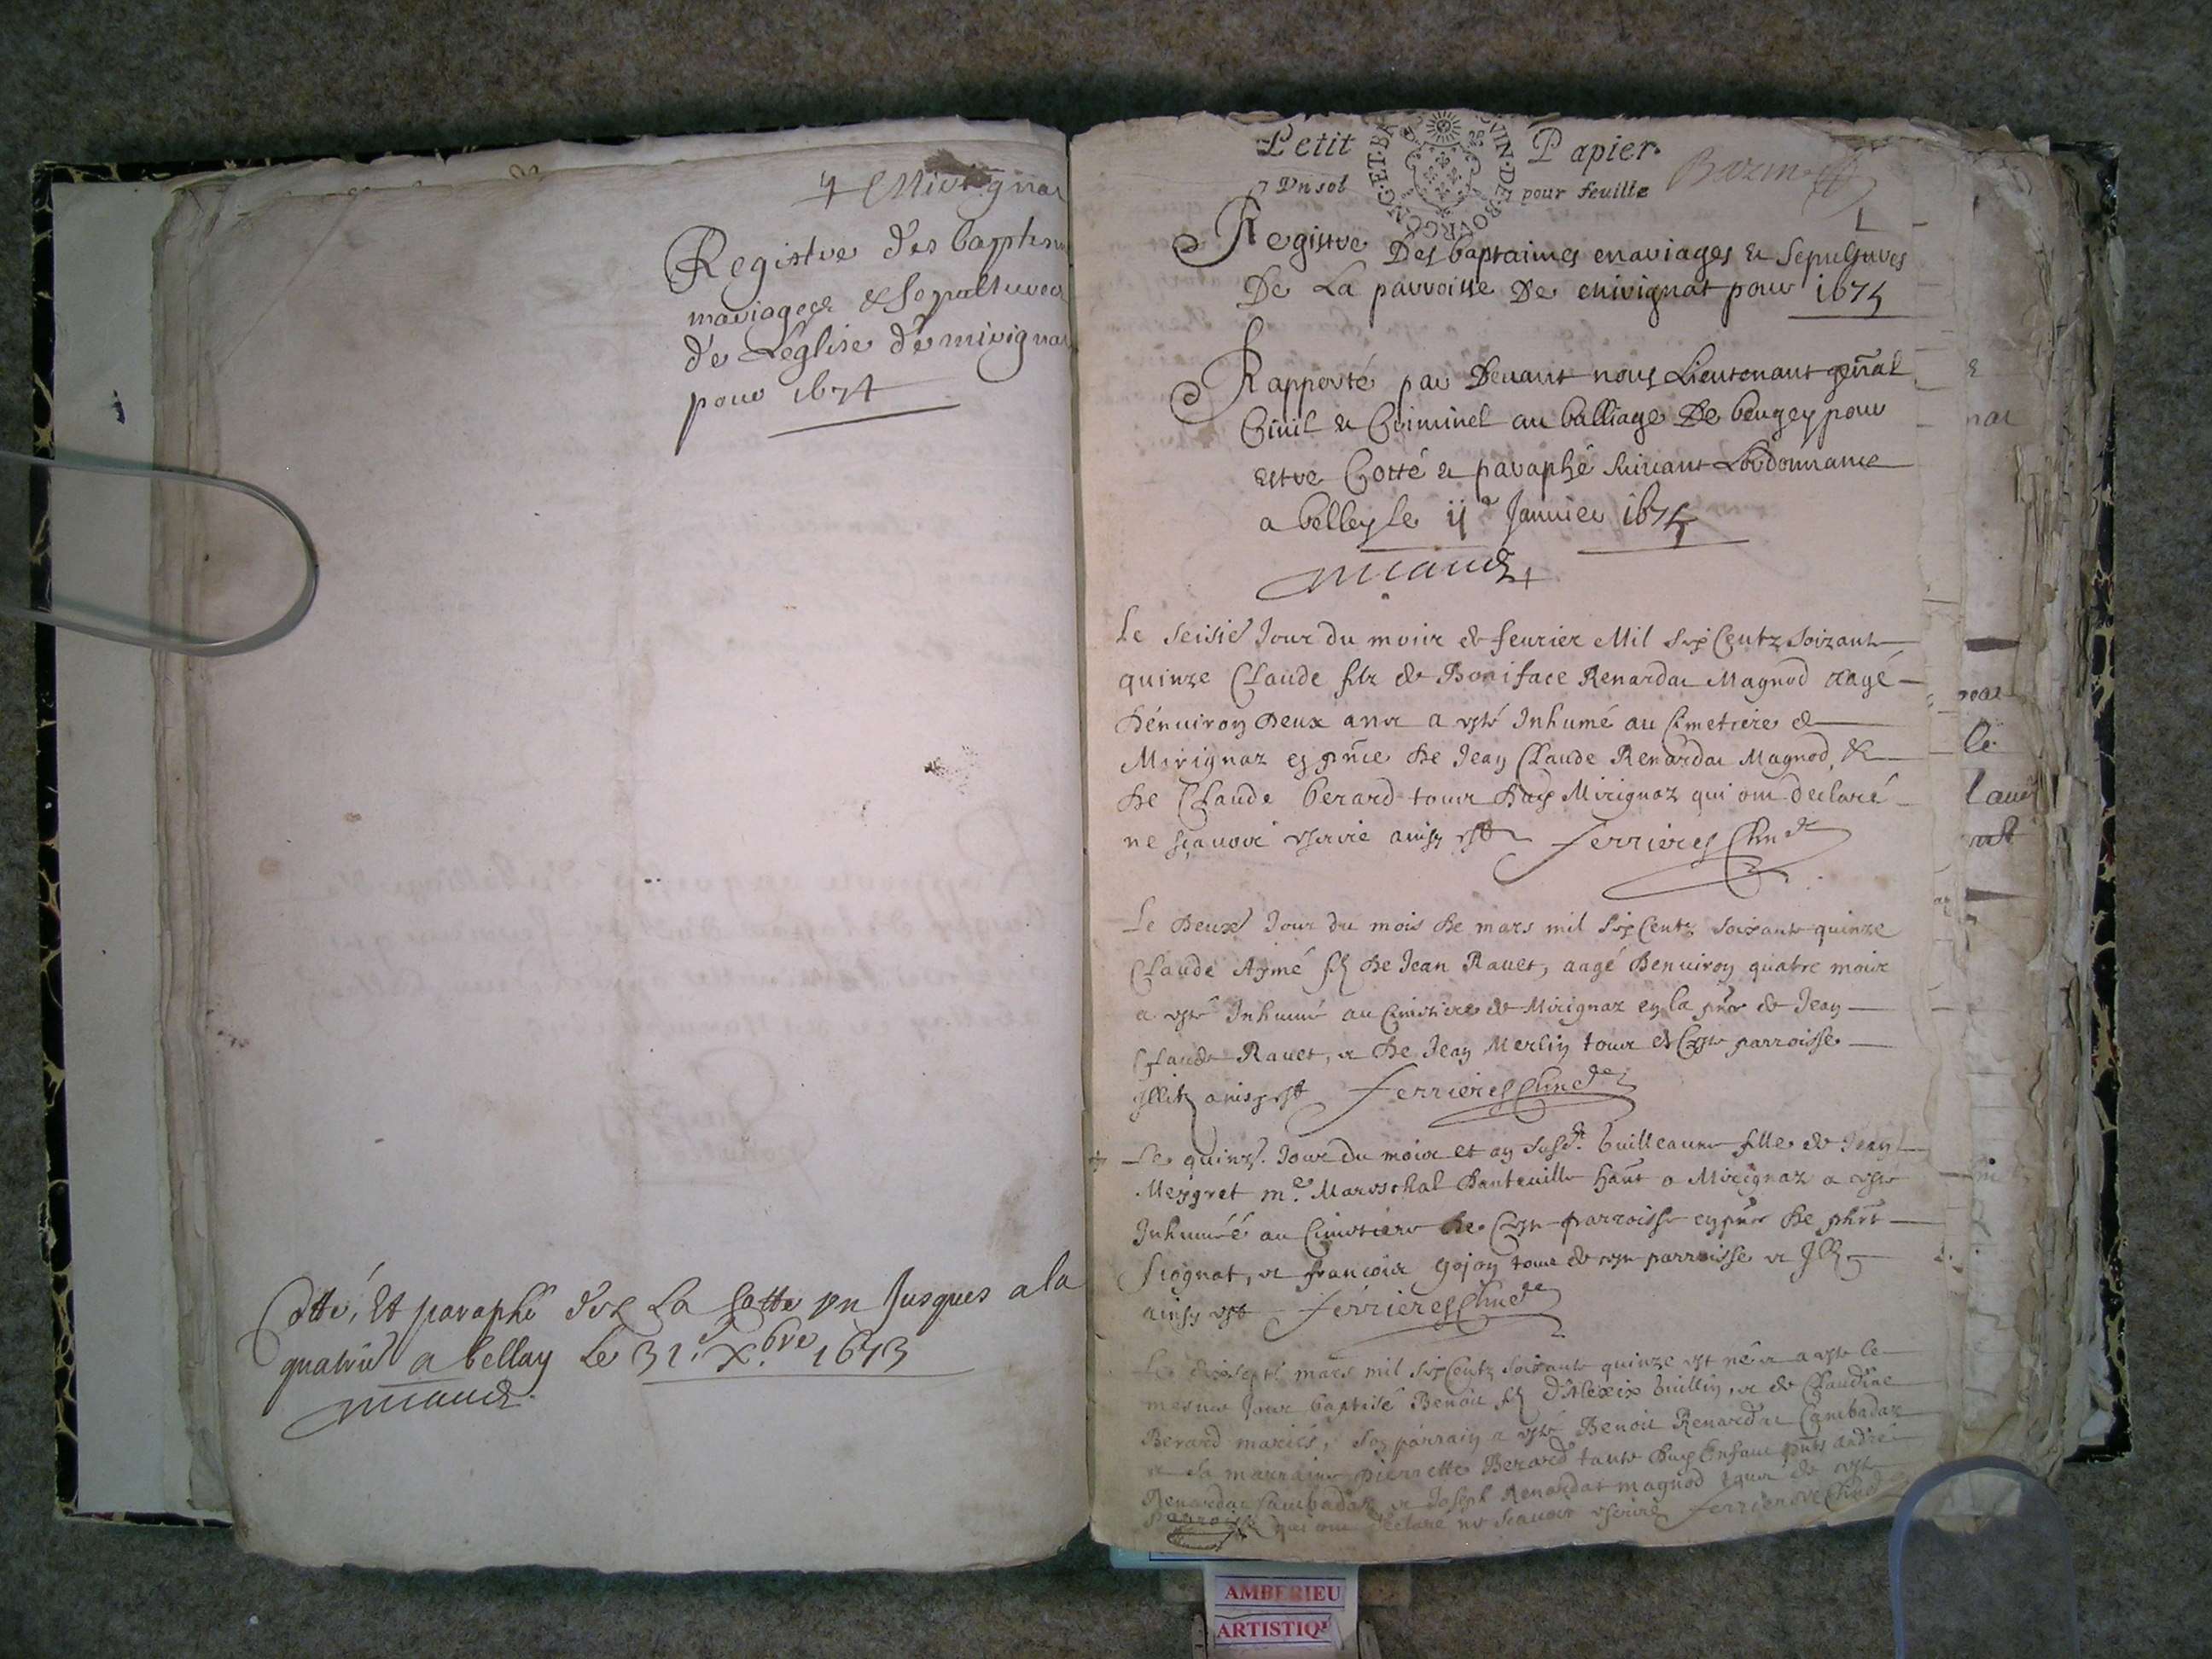 4 Mirignaz
Registre des baptesm
mariages & sepultures
de Leglise de mirignaz
pour 1674
Cotté, Et paraphé dez La Cotte un Jusques a la
quatrie a bellay Le 31. Xbre 1673
Petit Papier
Un sol pour feuille
GVIN·DE·BOVRGONG·ET·BR
1
Registre Des baptaimes mariages & Sepultures
De La parroisse De mirignat pour 1675
Rapporté par Devant nous Lieutenant genal
Civil & Criminel au balliage De beugey pour
estre Cotté & paraphé suivant Lordonnance
a belley le Janvier 1675
Le seisie Jour du mois de fevrier Mil six Centz soixante
quinze Claude filz de Boniface Renardat Magnod aagé
denviron deux ans a esté Inhumé au Cimetiere de
Mirignaz en pnce de Jean Claude Renardat Magnod, &
de Claude berard tous dud Mirignaz qui ont declaré
ne sçavoir escrire ainsy est Ferrieres
Le deux Jour du mois de mars mil six Centz soixante quinze
Claude Aymé fz de Jean Ravet, aagé denviron quatre mois
a esté Inhumé au Cimetiere de Mirignaz en la pnce de Jean
Claude Ravet, & de Jean Merlin tous de Ceste parroisse
Illitz ainsy est Ferrieres
Le quinz. Jour du mois et an susd. Guilleaume fille de Jean
Meygret me. Mareschal hant a Mirignaz a esté
Inhumée au Cimetiere de Ceste parroisse en pnce de
& francois Gojon tous de ceste parroisse &
ainsy est Ferrieres
Le dixsept mars mil six Centz soixante quinze est né & a esté le
mesme Jour baptisé Benoit fz d'Alexix Guillin, & de Claudine
Berard mariés, son parrain a esté Benoit Renardat Cambadaz
& sa marraine pierrette Berard tante dud Enfant pnts André
Renardat Cambadaz & Joseph Renardat magnod tous de ceste
parroisse qui ont declaré ne scavoir escrire
AMBERIEU
ARTISTIQ